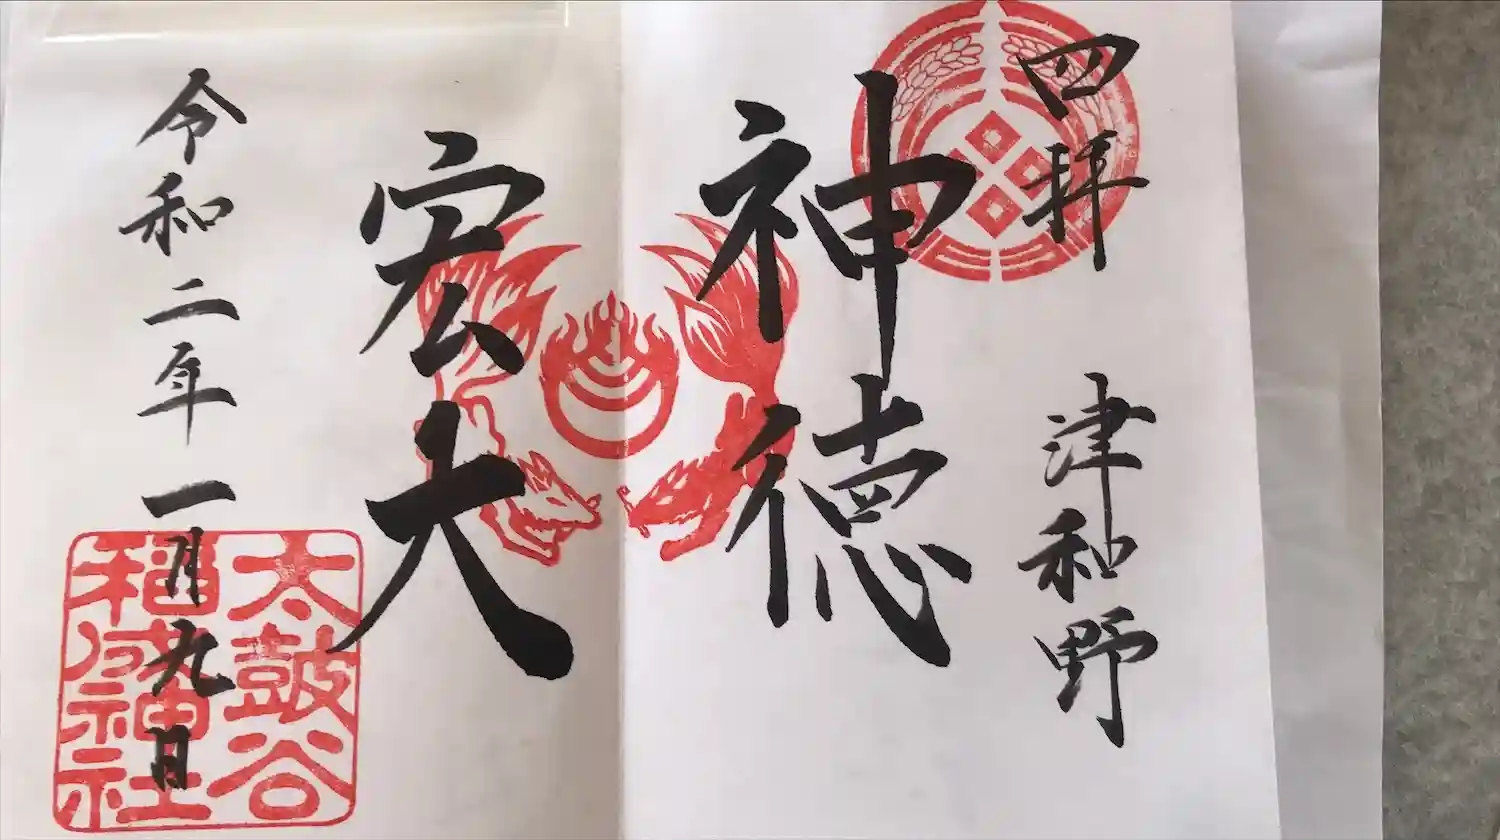 四拝 津和野
神徳
宏大
令和二年一月九日
太皷谷
稲成神社